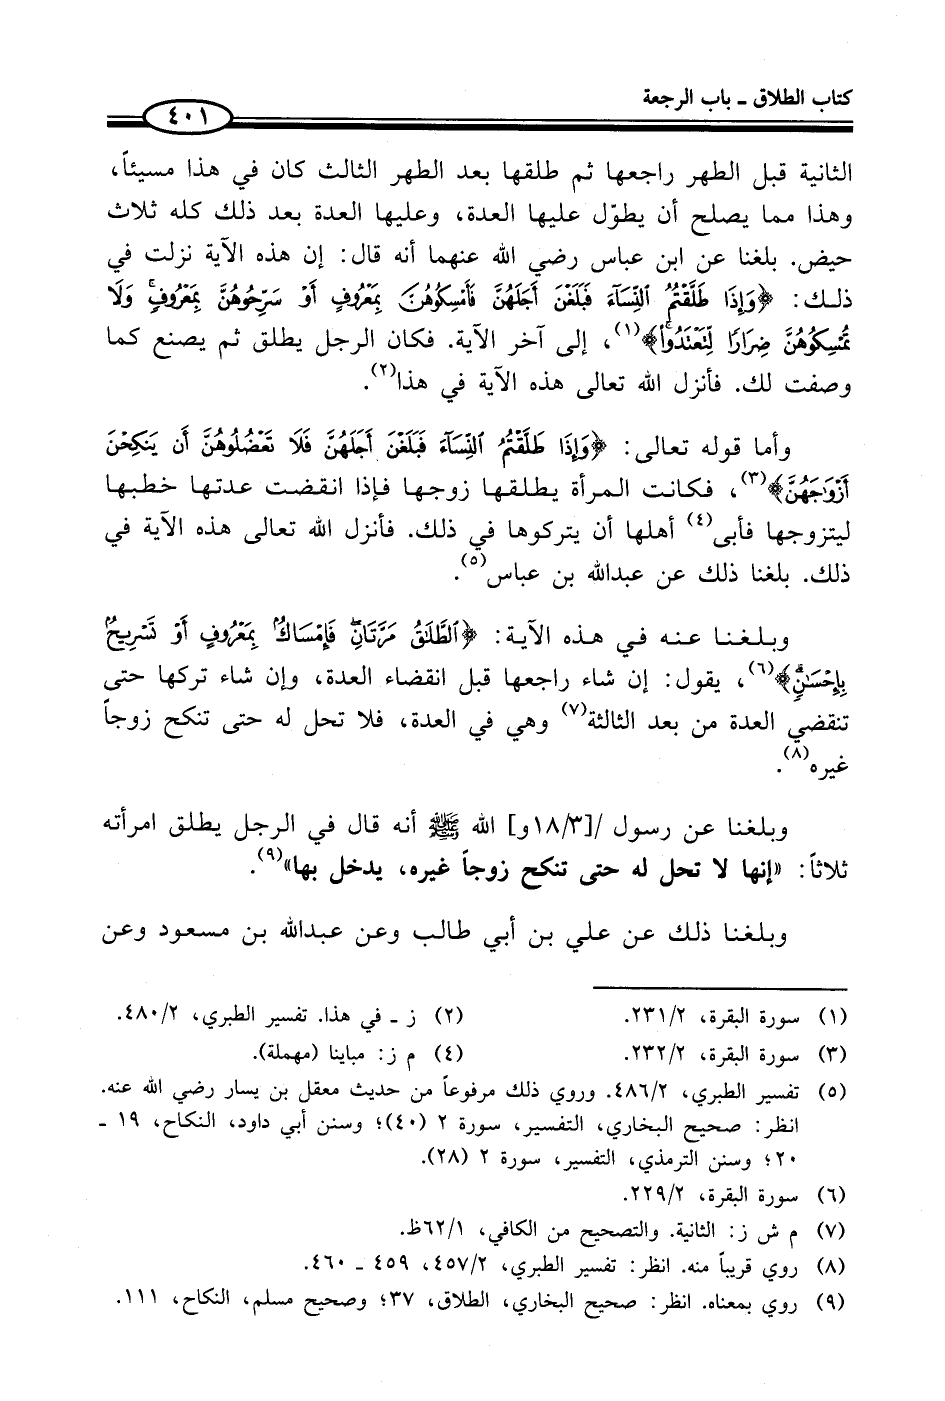 كتاب الطلاق - باب الرجعة
٤٠١
الثانية قبل الطهر راجعها ثم طلقها بعد الطهر الثالث كان في هذا مسيئاً،
وهذا مما يصلح أن يطوّل عليها العدة، وعليها العدة بعد ذلك كله ثلاث
حيض. بلغنا عن ابن عباس رضي الله عنهما أنه قال: إن هذه الآية نزلت في
ذلك: ﴿وَإِذَا طَلَّقْتُمُ النِّسَآءَ فَبَلَغْنَ أَجَلَهُنَّ فَأَمْسِكُوهُنَّ بِمَعْرُوفٍ أَوْ سَرِّحُوهُنَّ بِمَعْرُوفٍ وَلَا
تُمْسِكُوهُنَّ ضِرَارًا لِّتَعْتَدُوا﴾(١)، إلى آخر الآية. فكان الرجل يطلق ثم يصنع كما
وصفت لك. فأنزل الله تعالى هذه الآية في هذا(٢).
وأما قوله تعالى: ﴿وَإِذَا طَلَّقْتُمُ النِّسَآءَ فَبَلَغْنَ أَجَلَهُنَّ فَلَا تَعْضُلُوهُنَّ أَن يَنكِحْنَ
أَزْوَاجَهُنَّ﴾(٣)، فكانت المرأة يطلقها زوجها فإذا انقضت عدتها خطبها
ليتزوجها فأبى(٤) أهلها أن يتركوها في ذلك. فأنزل الله تعالى هذه الآية في
ذلك. بلغنا ذلك عن عبدالله بن عباس(٥).
وبلغنا عنه في هذه الآية: ﴿الطَّلَاقُ مَرَّتَانِ فَإِمْسَاكٌ بِمَعْرُوفٍ أَوْ تَسْرِيحٌ
بِإِحْسَانٍ﴾(٦)، يقول: إن شاء راجعها قبل انقضاء العدة، وإن شاء تركها حتى
تنقضي العدة من بعد الثالثة(٧) وهي في العدة، فلا تحل له حتى تنكح زوجاً
غيره(٨).
وبلغنا عن رسول /[١٨/٣و] الله ﷺ أنه قال في الرجل يطلق امرأته
ثلاثاً: «إنها لا تحل له حتى تنكح زوجاً غيره، يدخل بها»(٩).
وبلغنا ذلك عن علي بن أبي طالب وعن عبدالله بن مسعود وعن
(١) سورة البقرة، ٢٣١/٢. (٢) ز - في هذا. تفسير الطبري، ٤٨٠/٢.
(٣) سورة البقرة، ٢٣٢/٢. (٤) م ز: مباينا (مهملة).
(٥) تفسير الطبري، ٤٨٦/٢. وروي ذلك مرفوعاً من حديث معقل بن يسار رضي الله عنه.
انظر: صحيح البخاري، التفسير، سورة ٢ (٤٠)؛ وسنن أبي داود، النكاح، ١٩ -
٢٠؛ وسنن الترمذي، التفسير، سورة ٢ (٢٨).
(٦) سورة البقرة، ٢٢٩/٢.
(٧) م ش ز: الثانية. والتصحيح من الكافي، ٦٢/١ظ.
(٨) روي قريباً منه. انظر: تفسير الطبري، ٤٥٧/٢، ٤٥٩ - ٤٦٠.
(٩) روي بمعناه. انظر: صحيح البخاري، الطلاق، ٣٧؛ وصحيح مسلم، النكاح، ١١١.